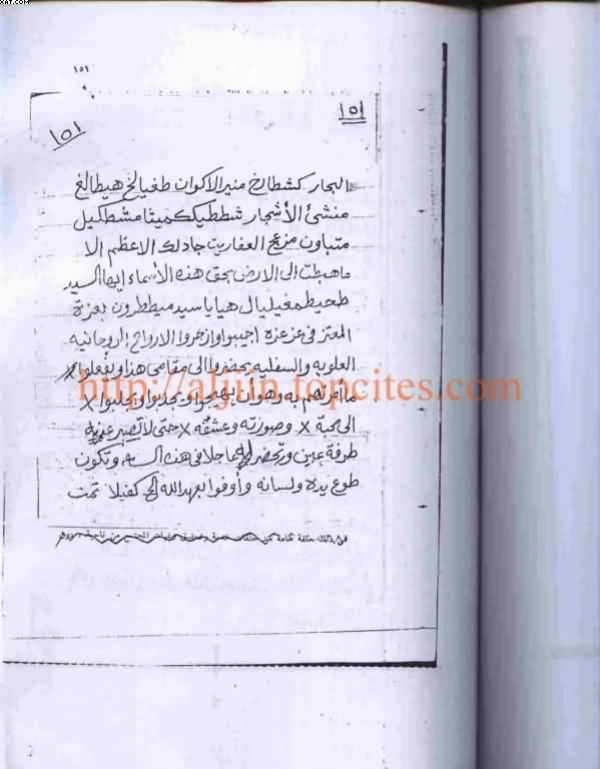 XAT.COM
١٥١
١٥١
١٥١
البحار كشطالخ منير الاكوان طغيالخ هيطالغ
منشئ الأشجار شططيكك ميثا مشطكيل
متباون مزعج العفاريت جادلك الاعظم الا
ما هبطت الى الارض بحق هذه الأسماء ايها السيد
طحيطمغيليال هيا يا سيد ميططرون بعزة
المعتز فى عز عزه اجيبوا وازجروا الارواح الروحانيه
العلويه والسفليه يحضروا الى مقامى هذا ويفعلوا
ما امرتهم به وهو ان
http://aljiin.topcites.com
الى محبة x وصورته وعشقه x حتى لا تصبر عنه
طرفة عين وتحضر عاجلا فى هذه وتكون
طوع يده ولسانه وأوفوا بعهد الله كفيلا تمت